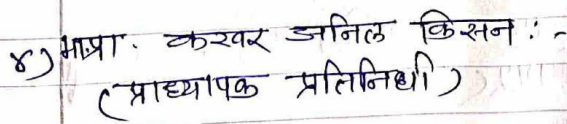 ४) मा.प्रा. करवर अनिल किसन :-
(प्राध्यापक प्रतिनिधी)